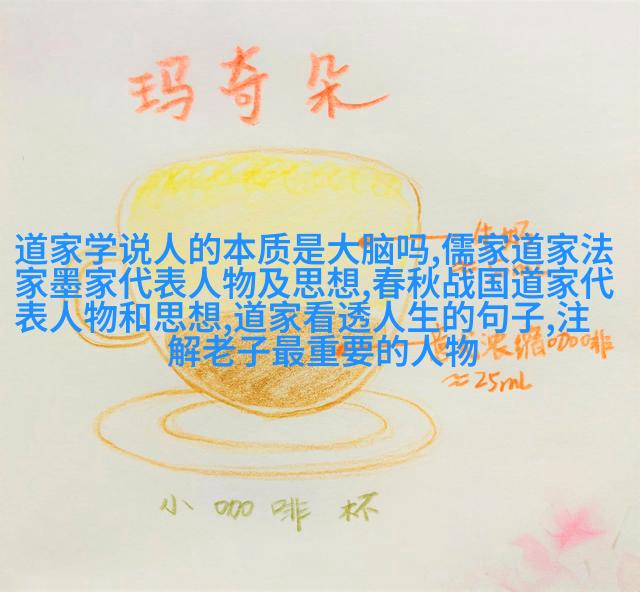 玛奇朵
道家学说人的本质是大脑吗,儒家道家法
家墨家代表人物及思想,春秋战国道家代
表人物和思想,道家看透人生的句子,注
解老子最重要的人物
浓缩咖啡
≈25mL
小咖啡杯